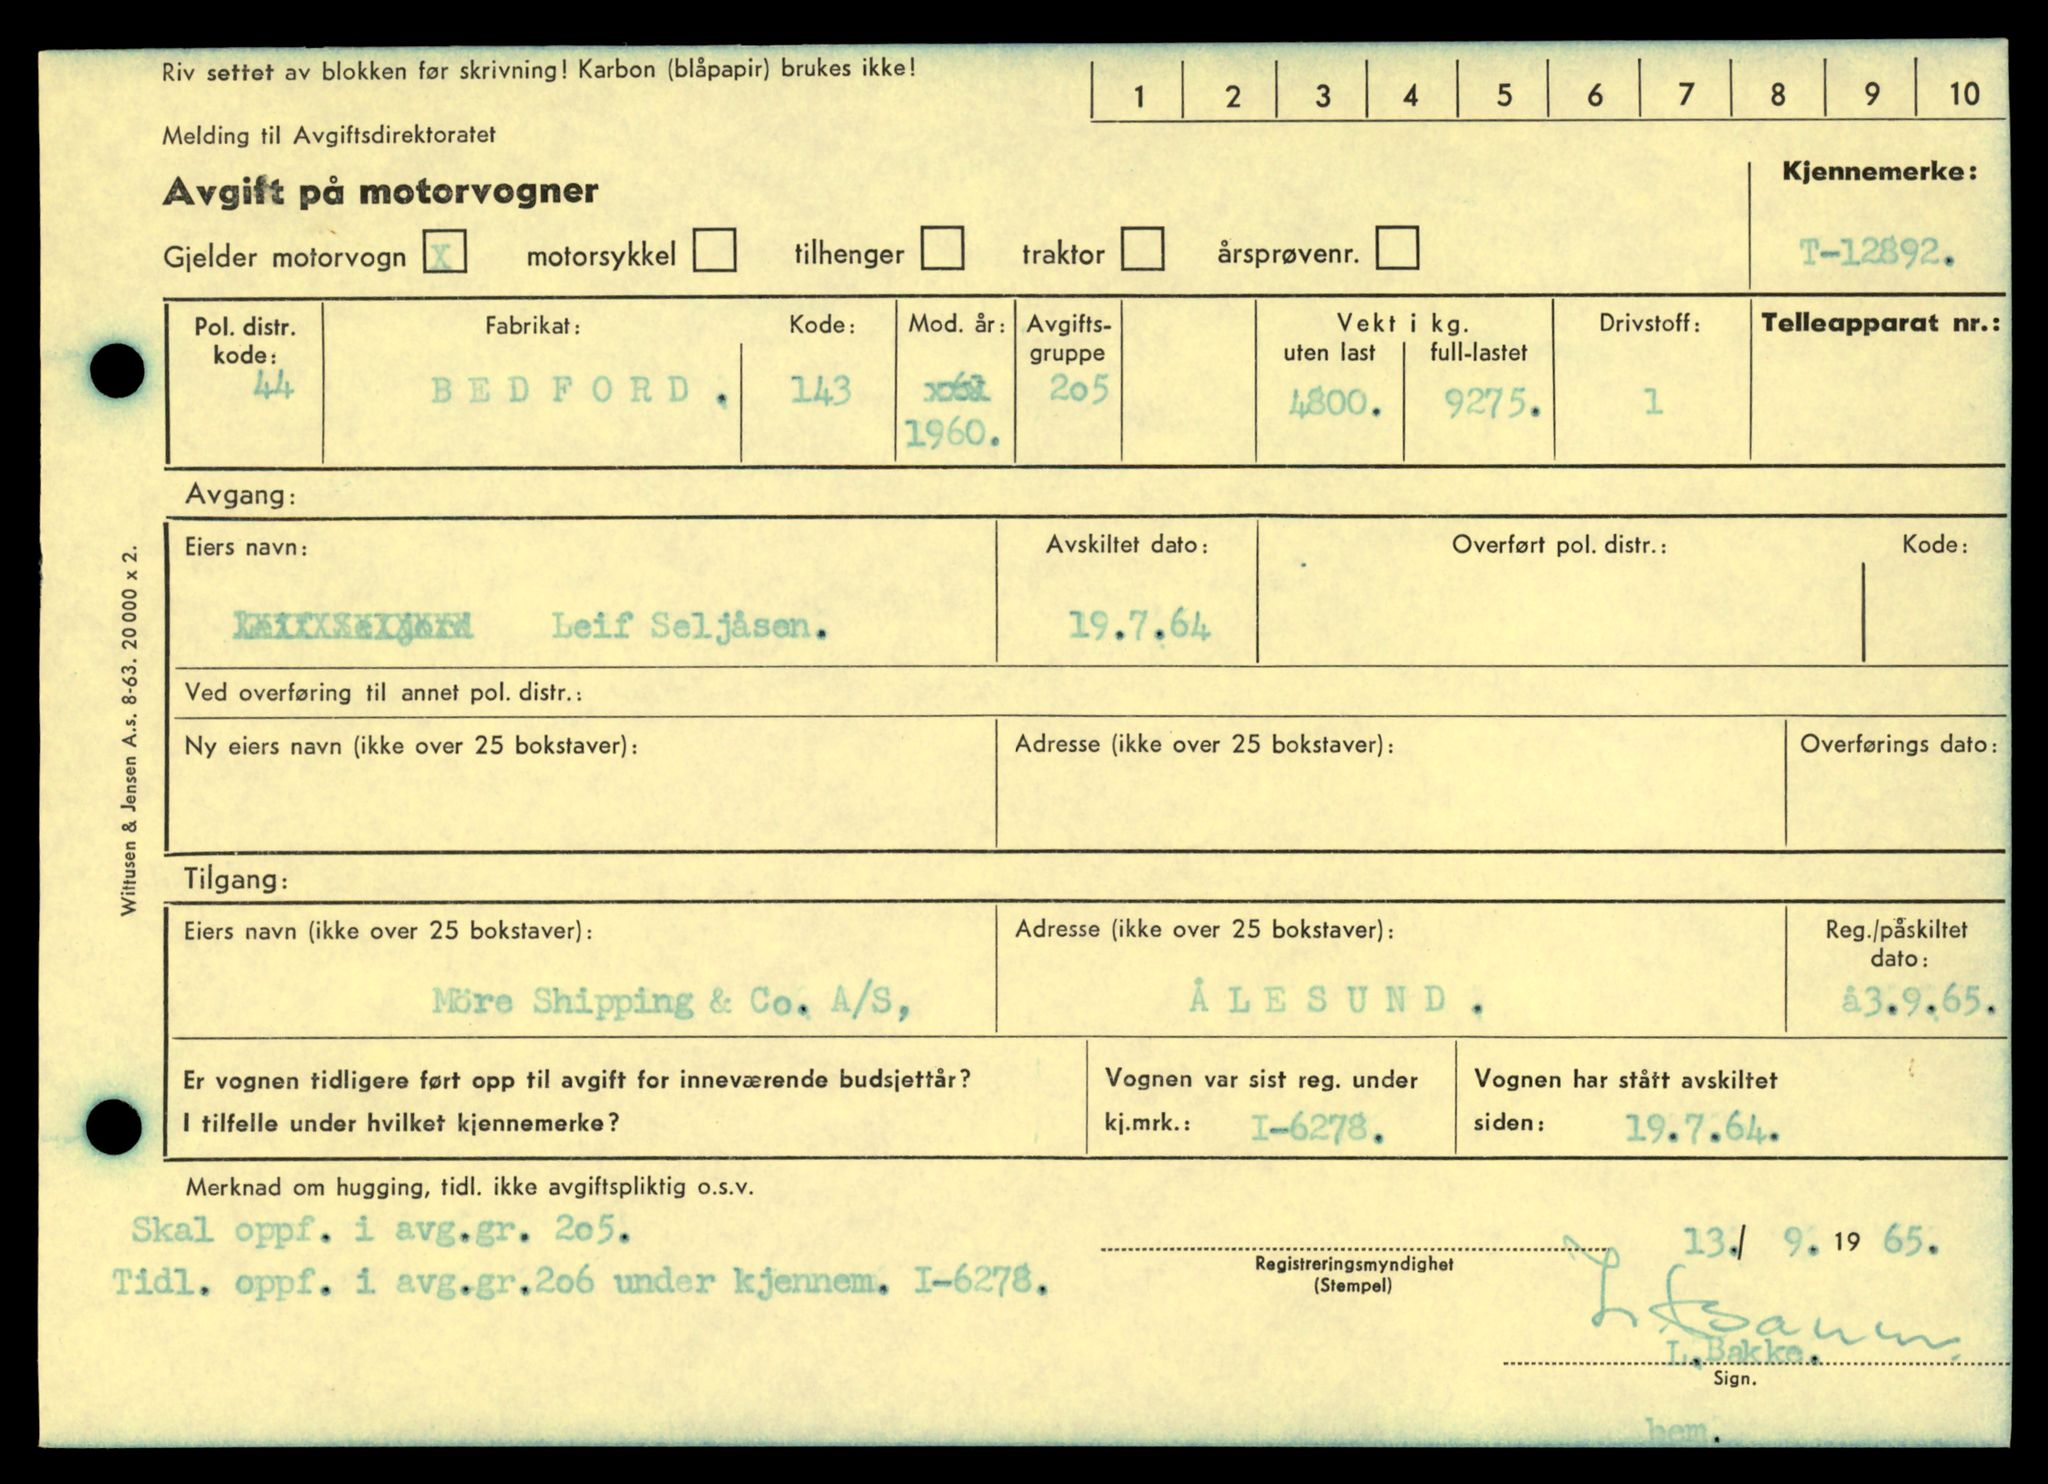 Riv settet av blokken før skrivning! Karbon (blåpapir) brukes ikke!
1 2 3 4 5 6 7 8 9 10
Melding til Avgiftsdirektoratet
Avgift på motorvogner
Kjennemerke:
Gjelder motorvogn X motorsykkel tilhenger traktor årsprøvenr.
T-12892.
Pol. distr. kode: Fabrikat: Kode: Mod. år: Avgifts-gruppe Vekt i kg. Drivstoff: Telleapparat nr.:
uten last full-lastet
44 BEDFORD. 143 205 4800. 9275. 1
1960.
Avgang:
Eiers navn: Avskiltet dato: Overført pol. distr.: Kode:
Leif Seljåsen. 19.7.64
Ved overføring til annet pol. distr.:
Ny eiers navn (ikke over 25 bokstaver): Adresse (ikke over 25 bokstaver): Overførings dato:
Tilgang:
Eiers navn (ikke over 25 bokstaver): Adresse (ikke over 25 bokstaver): Reg./påskiltet dato:
Möre Shipping & Co. A/S, ÅLESUND. å3.9.65.
Er vognen tidligere ført opp til avgift for inneværende budsjettår? Vognen var sist reg. under Vognen har stått avskiltet
I tilfelle under hvilket kjennemerke? kj.mrk.: I-6278. siden: 19.7.64.
Merknad om hugging, tidl. ikke avgiftspliktig o.s.v.
Skal oppf. i avg.gr. 2o5.
13./ 9. 19 65.
Tidl. oppf. i avg.gr.2o6 under kjennem. I-6278.
Registreringsmyndighet
(Stempel)
L.Bakke.
Sign.
bem.
Wittusen & Jensen A.s. 8-63. 20 000 x 2.